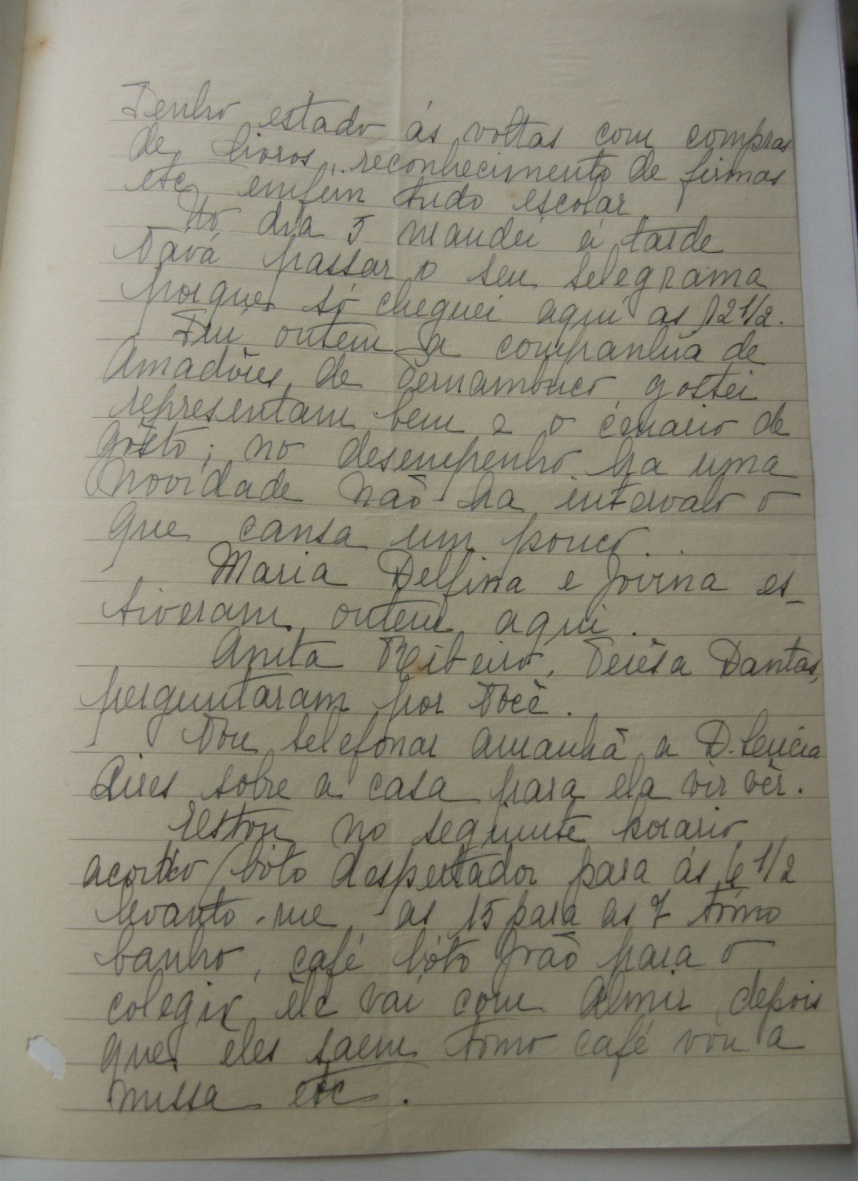 Tenho estado ás voltas com compras
de livros, reconhecimento de firmas
etc enfim tudo escolar
No dia 5 mandei á tarde
Vavá passar o seu telegrama
porque só cheguei aqui as 12 1/2.
Fui ontem a companhia de
Amadôres de Pernambuco, gostei
representam bem e o cenario de
gôsto; no desempenho ha uma
novidade não ha intervalo o
que cansa um pouco.
Maria Delfina e Jovina es-
tiveram ontem aqui.
Anita Ribeiro, Terêsa Dantas,
perguntaram por Você.
Vou telefonar amanhã a D.
Aires sobre a casa para ela vir vêr.
Estou no seguinte horario,
acordo (bóto despertador para ás 6 1/2
levanto-me, as 15 para as 7 tômo
banho, café bóto João para o
colegio, êle vai com Almir, depois
que eles saem tômo café vou a
missa etc.